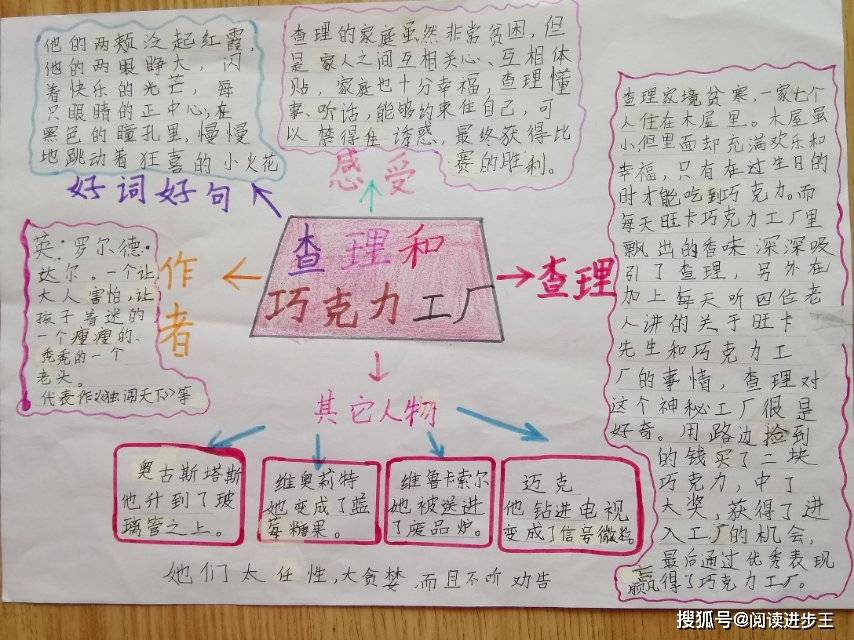 他的两颊泛起红霞,
他的两眼睁大,闪
着快乐的光芒,每
只眼睛的正中心,在
黑色的瞳孔里,慢慢
地跳动着狂喜的小火花
好词好句
查理的家庭虽然非常贫困,但
是家人之间互相关心、互相体
贴,家庭也十分幸福,查理懂
事、听话,能够约束住自己,可
以禁得住诱惑,最终获得比
赛的胜利。
感受
英:罗尔德·
达尔。一个让
大人害怕,让
孩子着迷的
一个瘦瘦的、
秃秃的一个
老头。
代表作《独闯天下》等
作者
查理和
巧克力工厂
查理
查理家境贫寒,一家七个
人住在木屋里。木屋虽
小但里面却充满欢乐和
幸福,只有在过生日的
时才能吃到巧克力。而
每天旺卡巧克力工厂里
飘出的香味深深吸
引了查理,另外在
加上每天听四位老
人讲的关于旺卡
先生和巧克力工
厂的事情,查理对
这个神秘工厂很是
好奇。用路边捡到
的钱买了二块
巧克力,中了
大奖,获得了进
入工厂的机会,
最后通过优秀表现
赢得了巧克力工厂。
其它人物
奥古斯塔斯
他升到了玻
璃管之上。
维奥莉特
她变成了蓝
莓糖果。
维鲁卡索尔
她被送进
了废品炉。
迈克
他钻进电视
变成了信号微粒。
她们太任性,大贪婪,而且不听劝告
搜狐号@阅读进步王